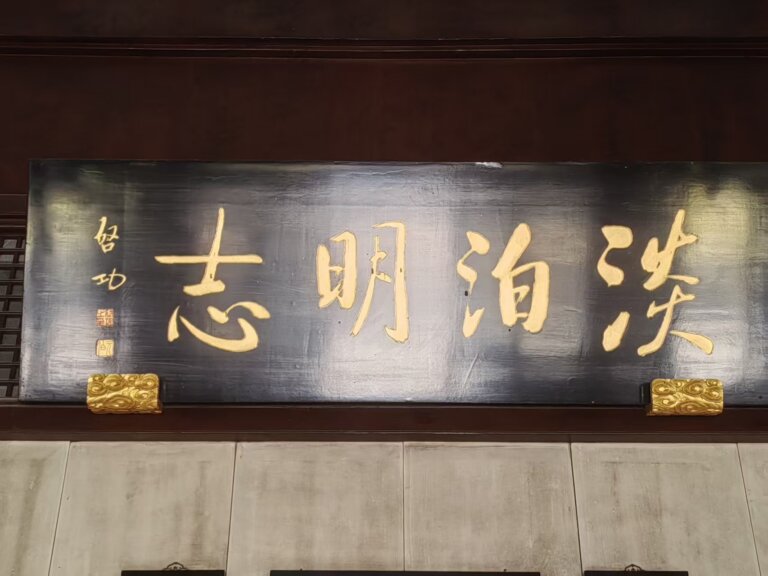 淡泊明志
启功